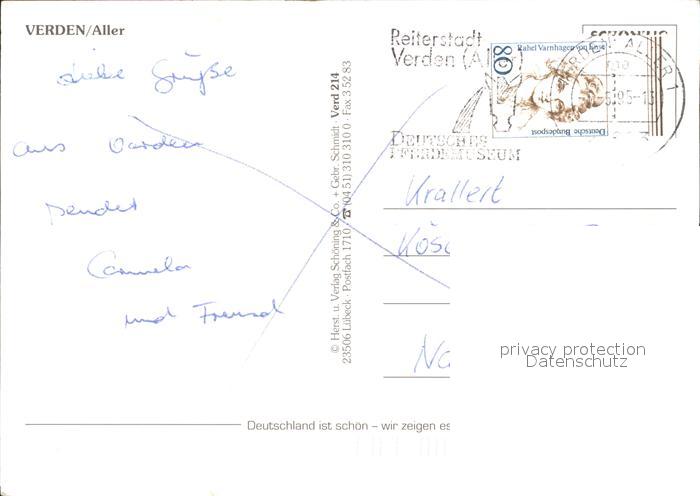 VERDEN/Aller
Liebe Grüße
aus Varden
sendet
Carmela
und Freund
© Herst. u. Verlag Schöning & Co. + Gebr. Schmidt · Verd 214
23506 Lübeck · Postfach 1710 · ☎ (04 51) 310 310 0 · Fax 3 52 83
Reiterstadt
Verden (Al
DEUTSCHES
PFERDEMUSEUM
80
Rahel Varnhagen von Ense
Deutsche Bundespost
VERDEN, ALLER 1
95-15
Krallert
Na
privacy protection
Datenschutz
Deutschland ist schön – wir zeigen es